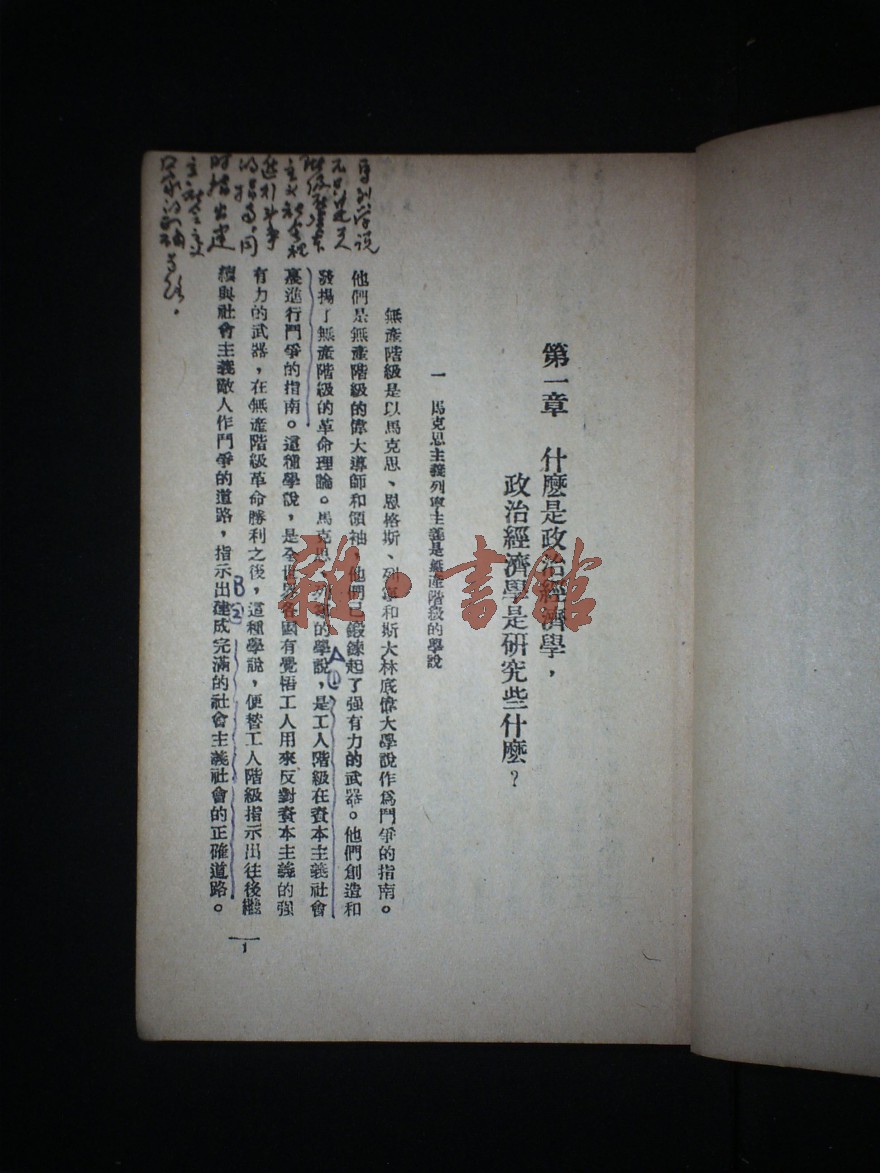 第一章　什麼是政治經濟學，
政治經濟學是研究些什麼？
一　馬克思主義列寧主義是無產階級的學說
無產階級是以馬克思、恩格斯、列寧和斯大林底偉大學說作為鬥爭的指南。
他們是無產階級的偉大導師和領袖，他們已鍛鍊起了强有力的武器。他們創造和
發揚了無產階級的革命理論。馬克思、列寧的學說，是工人階級在資本主義社會
裏進行鬥爭的指南。這種學說，是全世界各國有覺悟工人用來反對資本主義的强
有力的武器，在無產階級革命勝利之後，這種學說，便替工人階級指示出往後繼
續與社會主義敵人作鬥爭的道路，指示出建成完滿的社會主義社會的正確道路。
1
A①
B②
馬列学说
不只是工人
階級在資本
主义社会裡
進行斗爭
的指南，同
時指出建
主社会主义
雜·書館